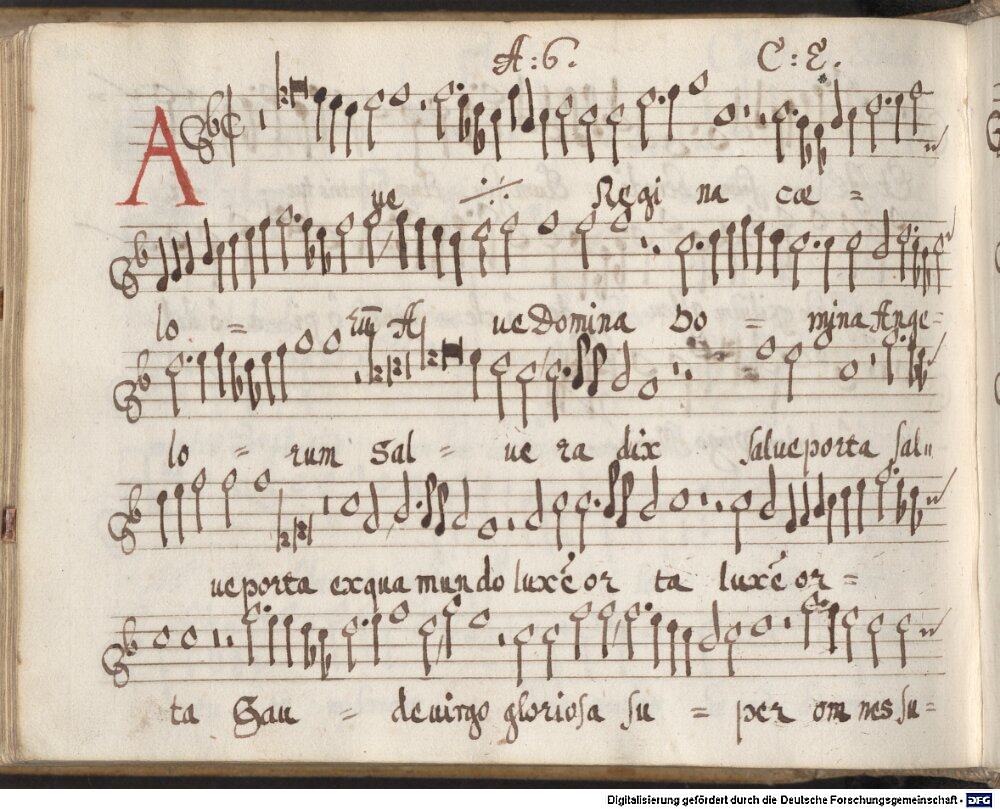 A : 6. C : E.
A ve ·/· Regina cæ =
lo = rū A ve Domina Do = mina Ange =
lo = rum Sal = ve ra dix salve porta sal
ve porta ex qua mundo lux ē or ta lux ē or =
ta Gau = de virgo gloriosa su = per omnes su =
Digitalisierung gefördert durch die Deutsche Forschungsgemeinschaft - DFG